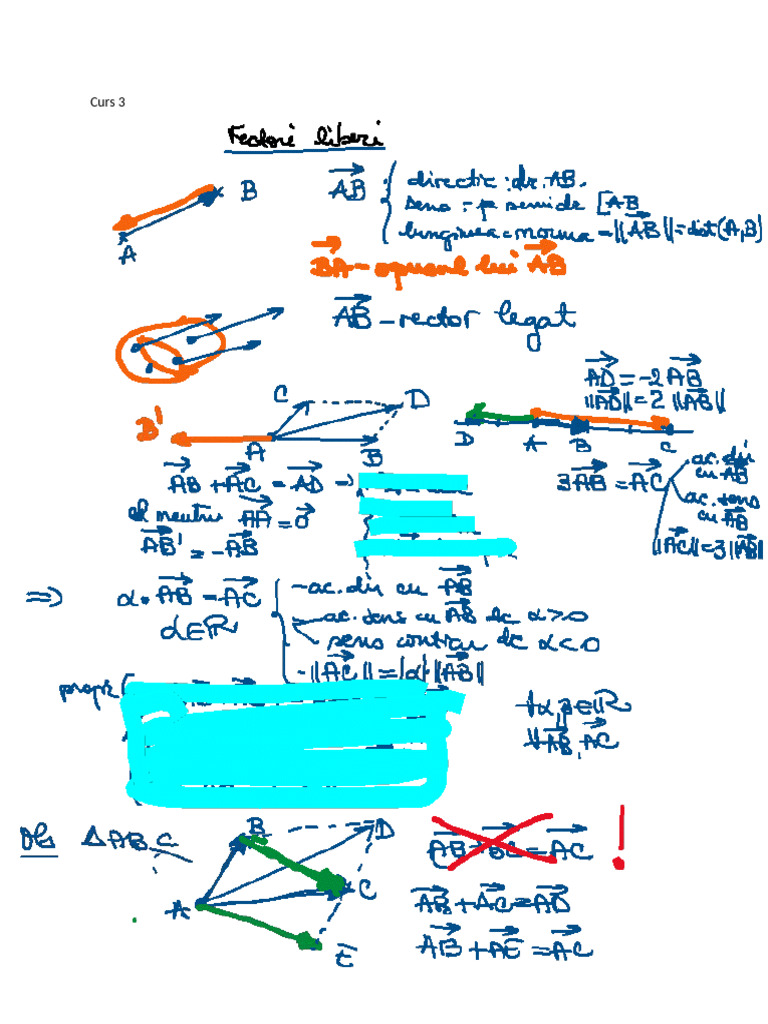 Curs 3
Vectori liberi
B
A
AB
directie: dr. AB.
sens → pe semidr [AB
lungimea = norma = ||AB|| = dist(A,B)
BA - opusul lui AB
AB - vector legat
AD = -2 AB
||AD|| = 2 ||AB||
C D
B'
A B
D A B C
AB + AC = AD →
3AB = AC
ac. dir cu AB
ac. sens cu AB
||AC|| = 3 ||AB||
el neutru AA = 0
AB' = -AB
⇒ α • AB = AC
α ∈ ℝ
- ac. dir cu AB
ac. sens cu AB dc α > 0
sens contrar dc α < 0
- ||AC|| = |α| ||AB||
propr
∀ α, β ∈ ℝ
∀ AB, AC
Obs Δ ABC
B D
A C
E
AB + BC = AC !
AB + AC = AD
AB + AE = AC